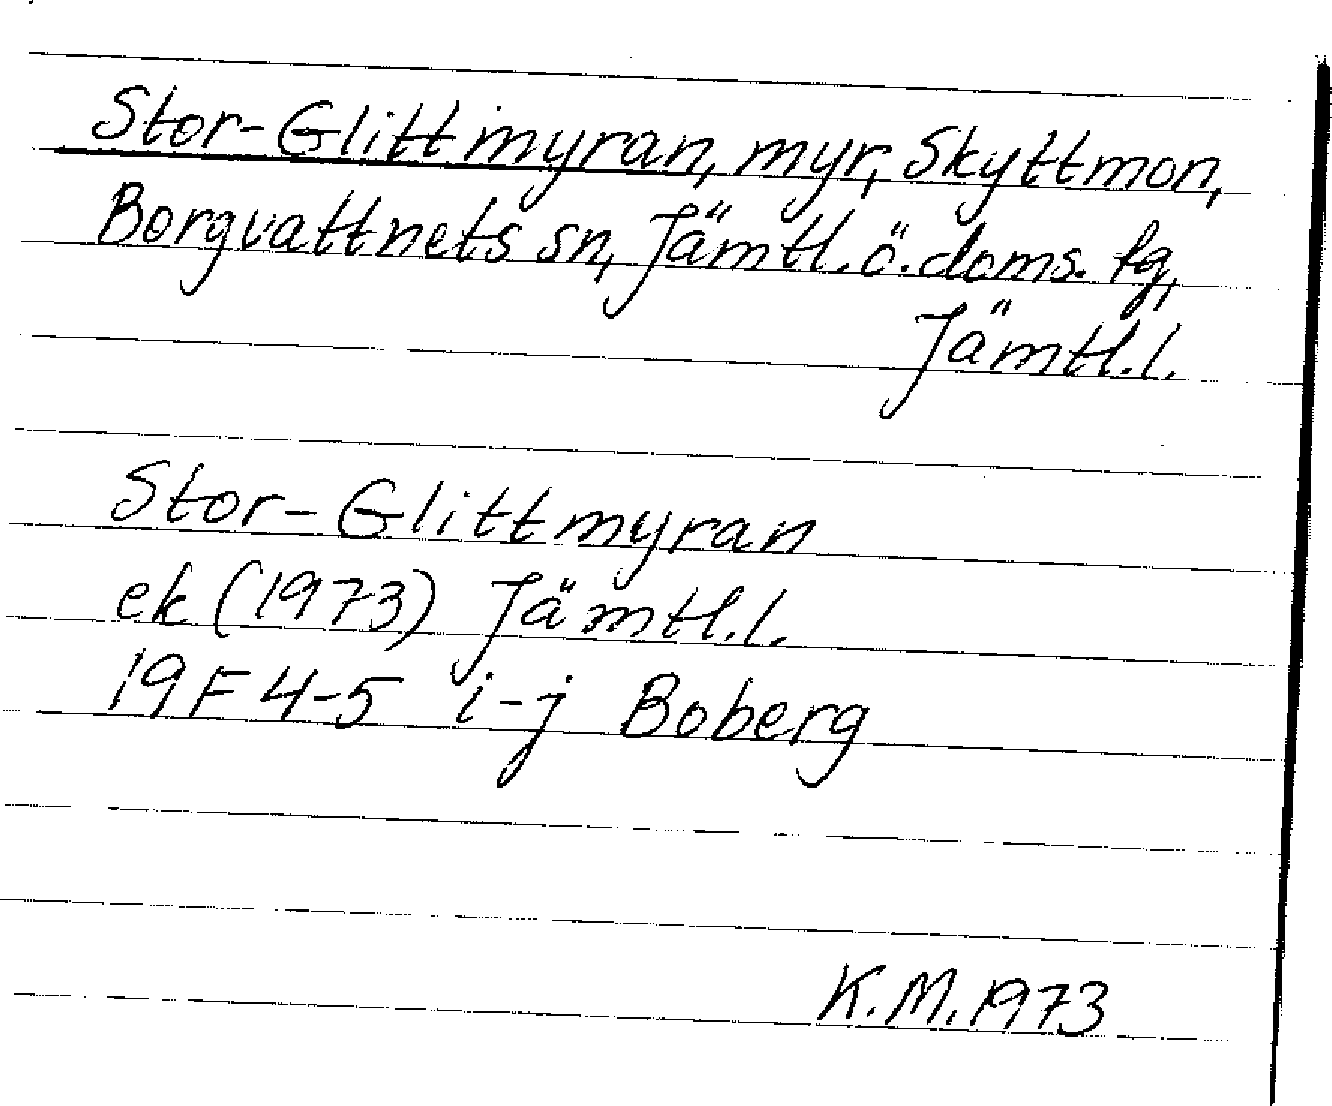 Stor-Glittmyran, myr, Skyttmon,
Borgvattnets sn, Jämtl. ö. doms. fg,
Jämtl.l.
Stor-Glittmyran
ek (1973) Jämtl.l.
19F 4-5 i-j Boberg
K.M. 1973